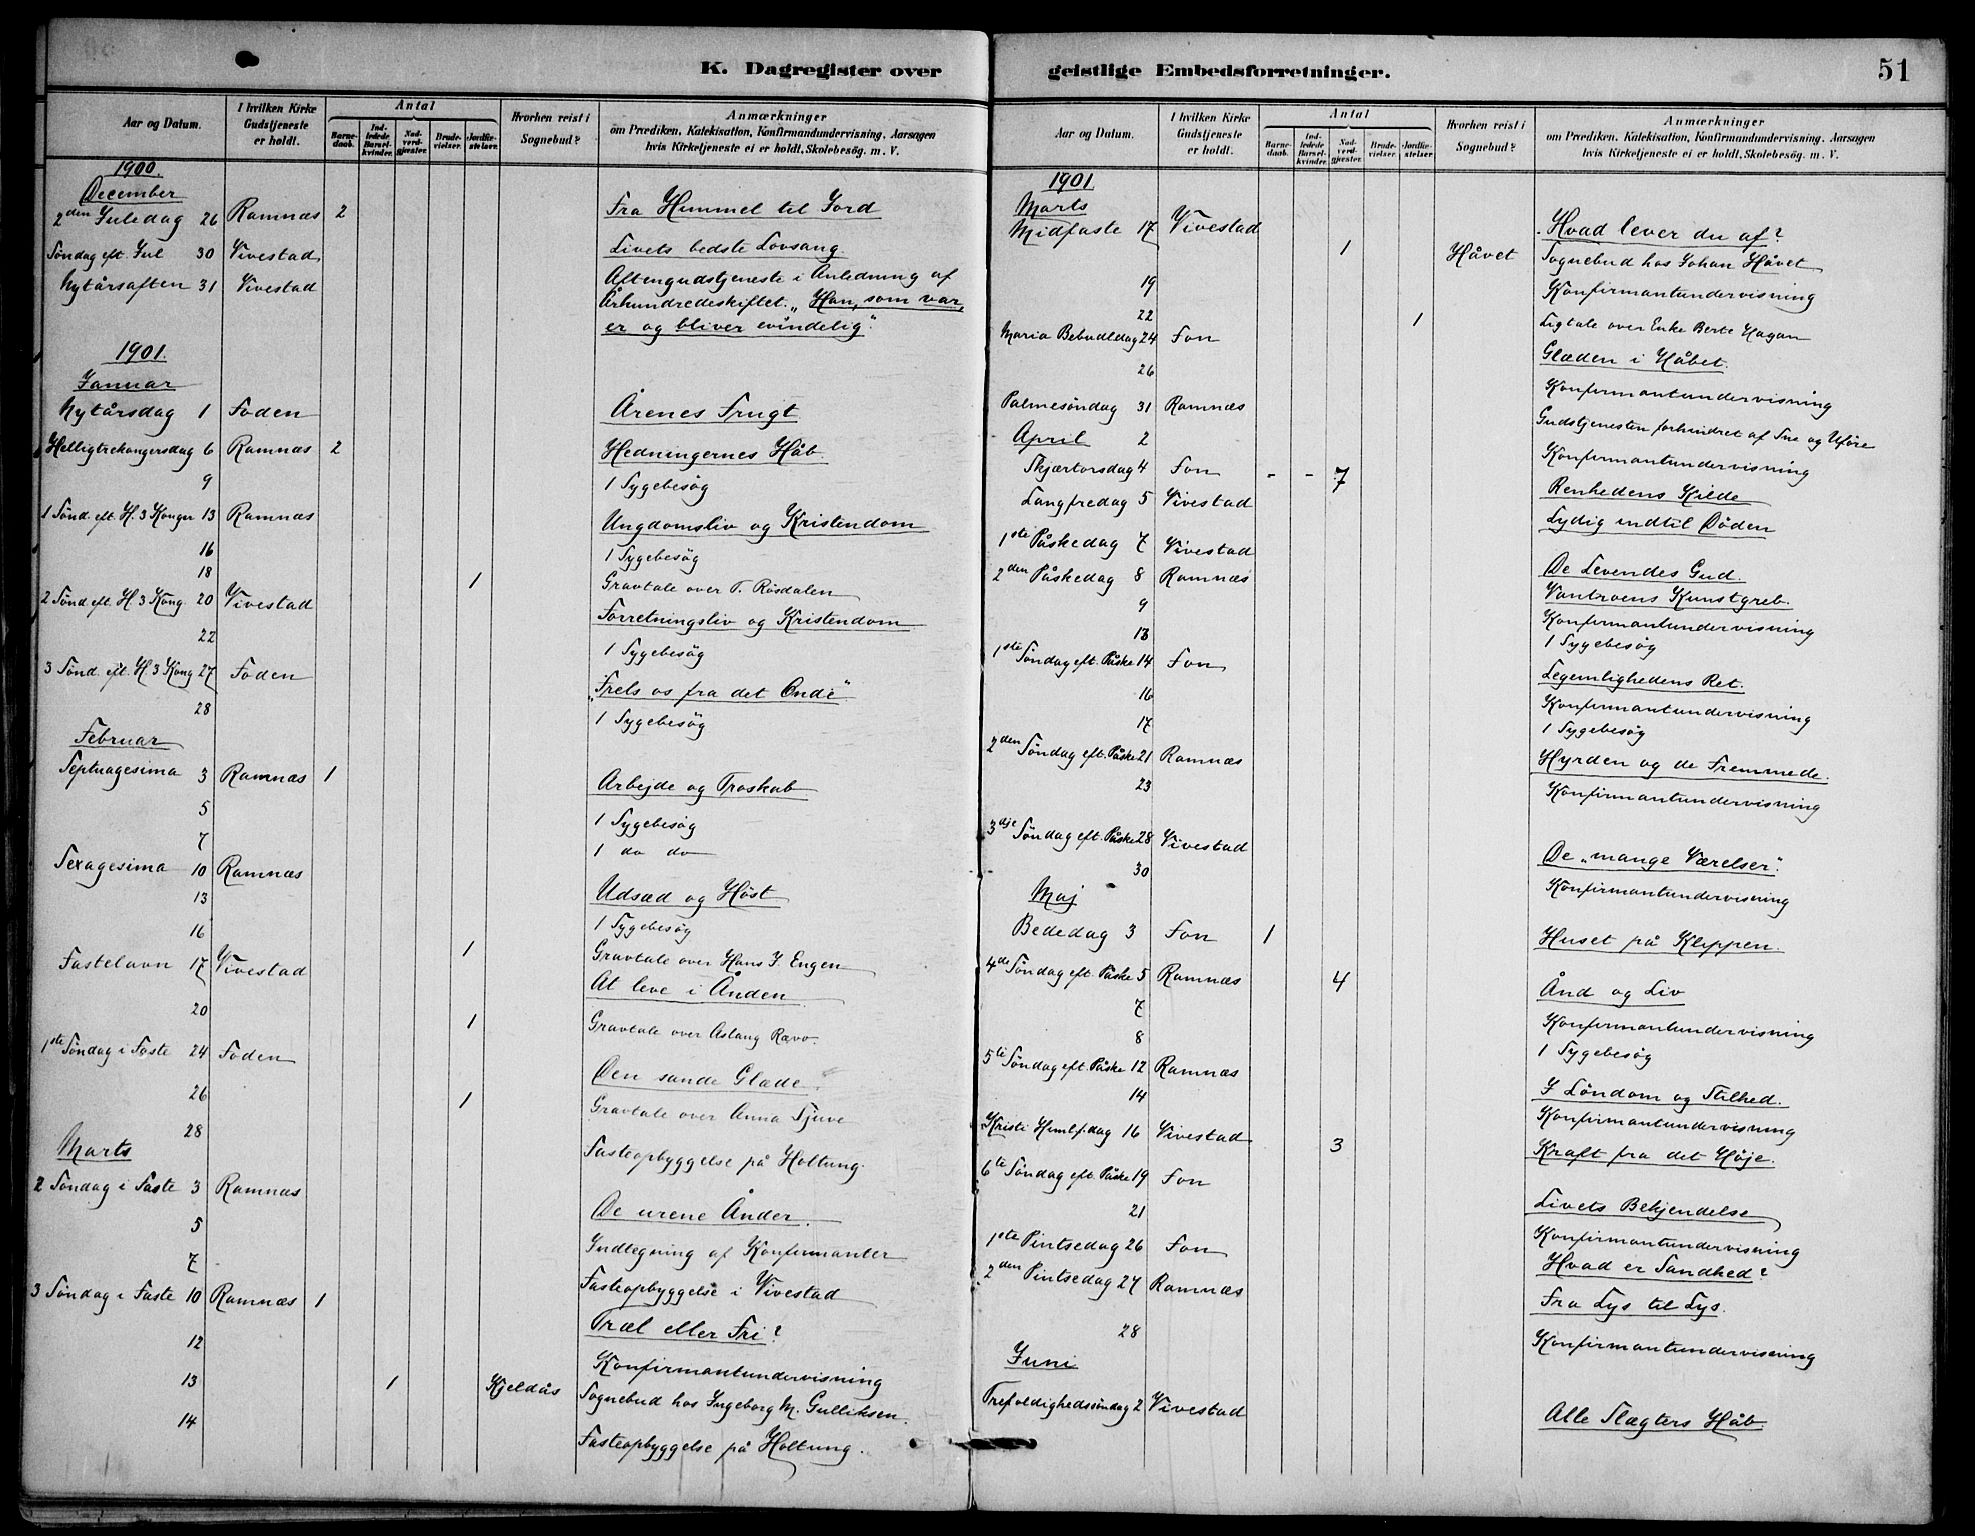 K. Dagregister over
Aar og Datum.
I hvilken Kirke Gudstjeneste er holdt.
Antal
Barnedaab.
Indledede Barselkvinder.
Nadverdgjester.
Brudevielser.
Jordfæstelser.
Hvorhen reist i Sognebud?
Anmærkninger
om Prædiken, Katekisation, Konfirmandundervisning, Aarsagen
hvis Kirketjeneste ei er holdt, Skolebesøg. m. V.
1900.
December
2den Juledag 26 Ramnæs 2 Fra Himmel til Jord
Søndag eft. Jul 30 Vivestad Livets bedste Lovsang.
Nytårsaften 31 Vivestad Aftengudstjeneste i Anledning af
Århundredeskiftet. „Han, som var,
er og bliver evindelig".
1901.
Januar
Nytårsdag 1 Foden Årenes Frugt
Helligtrekongersdag 6 Ramnæs 2 Hedningernes Håb.
9 1 Sygebesøg
1 Sønd. eft. H. 3 Konger 13 Ramnæs Ungdomsliv og Kristendom
16 1 Sygebesøg
18 1 Gravtale over T. Rösdalen
2 Sønd eft. H 3 Kong. 20 Vivestad Forretningsliv og Kristendom
22 1 Sygebesøg
3 Sønd. eft. H 3 Kong 27 Foden „Frels os fra det Onde"
28 1 Sygebesøg
Februar
Septuagesima 3 Ramnæs 1 Arbejde og Troskab
5 1 Sygebesøg
7 1 do do
Sexagesima 10 Ramnæs Udsæd og Høst
13 1 Sygebesøg
16 1 Gravtale over Hans J. Engen
Fastelavn 17 Vivestad At leve i Ånden
20 1 Gravtale over Aslaug Rævo.
1ste Søndag i Faste 24 Foden Den sande Glæde.
26 1 Gravtale over Anna Tjuve
28 Fasteopbyggelse på Holtung.
Marts
2 Søndag i Faste 3 Ramnæs De urene Ånder.
5 Indtegning af Konfirmanter
7 Fasteopbyggelse i Vivestad
3 Søndag i Faste 10 Ramnæs 1 Træl eller Fri?
12 Konfirmantundervisning
13 1 Kjeldås Sognebud hos Ingeborg M. Gulliksen.
14 Fasteopbyggelse på Holtung.
geistlige Embedsforretninger.
51
Aar og Datum.
I hvilken Kirke Gudstjeneste er holdt.
Antal
Barnedaab.
Indledede Barselkvinder.
Nadverdgjester.
Brudevielser.
Jordfæstelser
Hvorhen reist i Sognebud?
Anmærkninger
om Prædiken, Katekisation, Konfirmandundervisning, Aarsagen
hvis Kirketjeneste ei er holdt, Skolebesøg. m. V.
1901.
Marts
Midfaste 17 Vivestad Hvad lever du af?
1 Håvet Sognebud hos Johan Håvet
19 Konfirmantundervisning
22 1 Ligtale over Enke Berte Hagan
Maria Bebudldag 24 Fon Glæden i Håbet.
26 Konfirmantundervisning
Palmesøndag 31 Ramnæs Gudstjenesten forhindret af Sne og Uføre
April 2 Konfirmantundervisning
Skjærtorsdag 4 Fon - - 7 Renhedens Kilde
Langfredag 5 Vivestad Lydig indtil Døden
1ste Påskedag 7 Vivestad De Levendes Gud.
2den Påskedag 8 Ramnæs Vantroens Kunstgreb.
9 Konfirmantundervisning
13 1 Sygebesøg
1ste Søndag eft. Påske 14 Fon Legemlighedens Ret.
16 Konfirmantundervisning
17 1 Sygebesøg
2den Søndag eft. Påske 21 Ramnæs Hyrden og de Fremmede.
23 Konfirmantundervisning
3dje Søndag eft. Påske 28 Vivestad De „mange Værelser".
30 Konfirmantundervisning
Maj
Bededag 3 Fon 1 Huset på Klippen.
4de Søndag eft. Påske 5 Ramnæs 4 Ånd og Liv
7 Konfirmantundervisning
8 1 Sygebesøg
5te Søndag eft. Påske 12 Ramnæs I Løndom og Stilhed.
14 Konfirmantundervisning
Kristi Himlf.dag 16 Vivestad 3 Kraft fra det Høje.
6te Søndag eft. Påske 19 Fon Livets Bekjendelse
21 Konfirmantundervisning
1ste Pintsedag 26 Fon Hvad er Sandhed?
2den Pintsedag 27 Ramnæs Fra Lys til Lys.
28 Konfirmantundervisning
Juni
Trefoldighedssøndag 2 Vivestad Alle Slægters Håb.